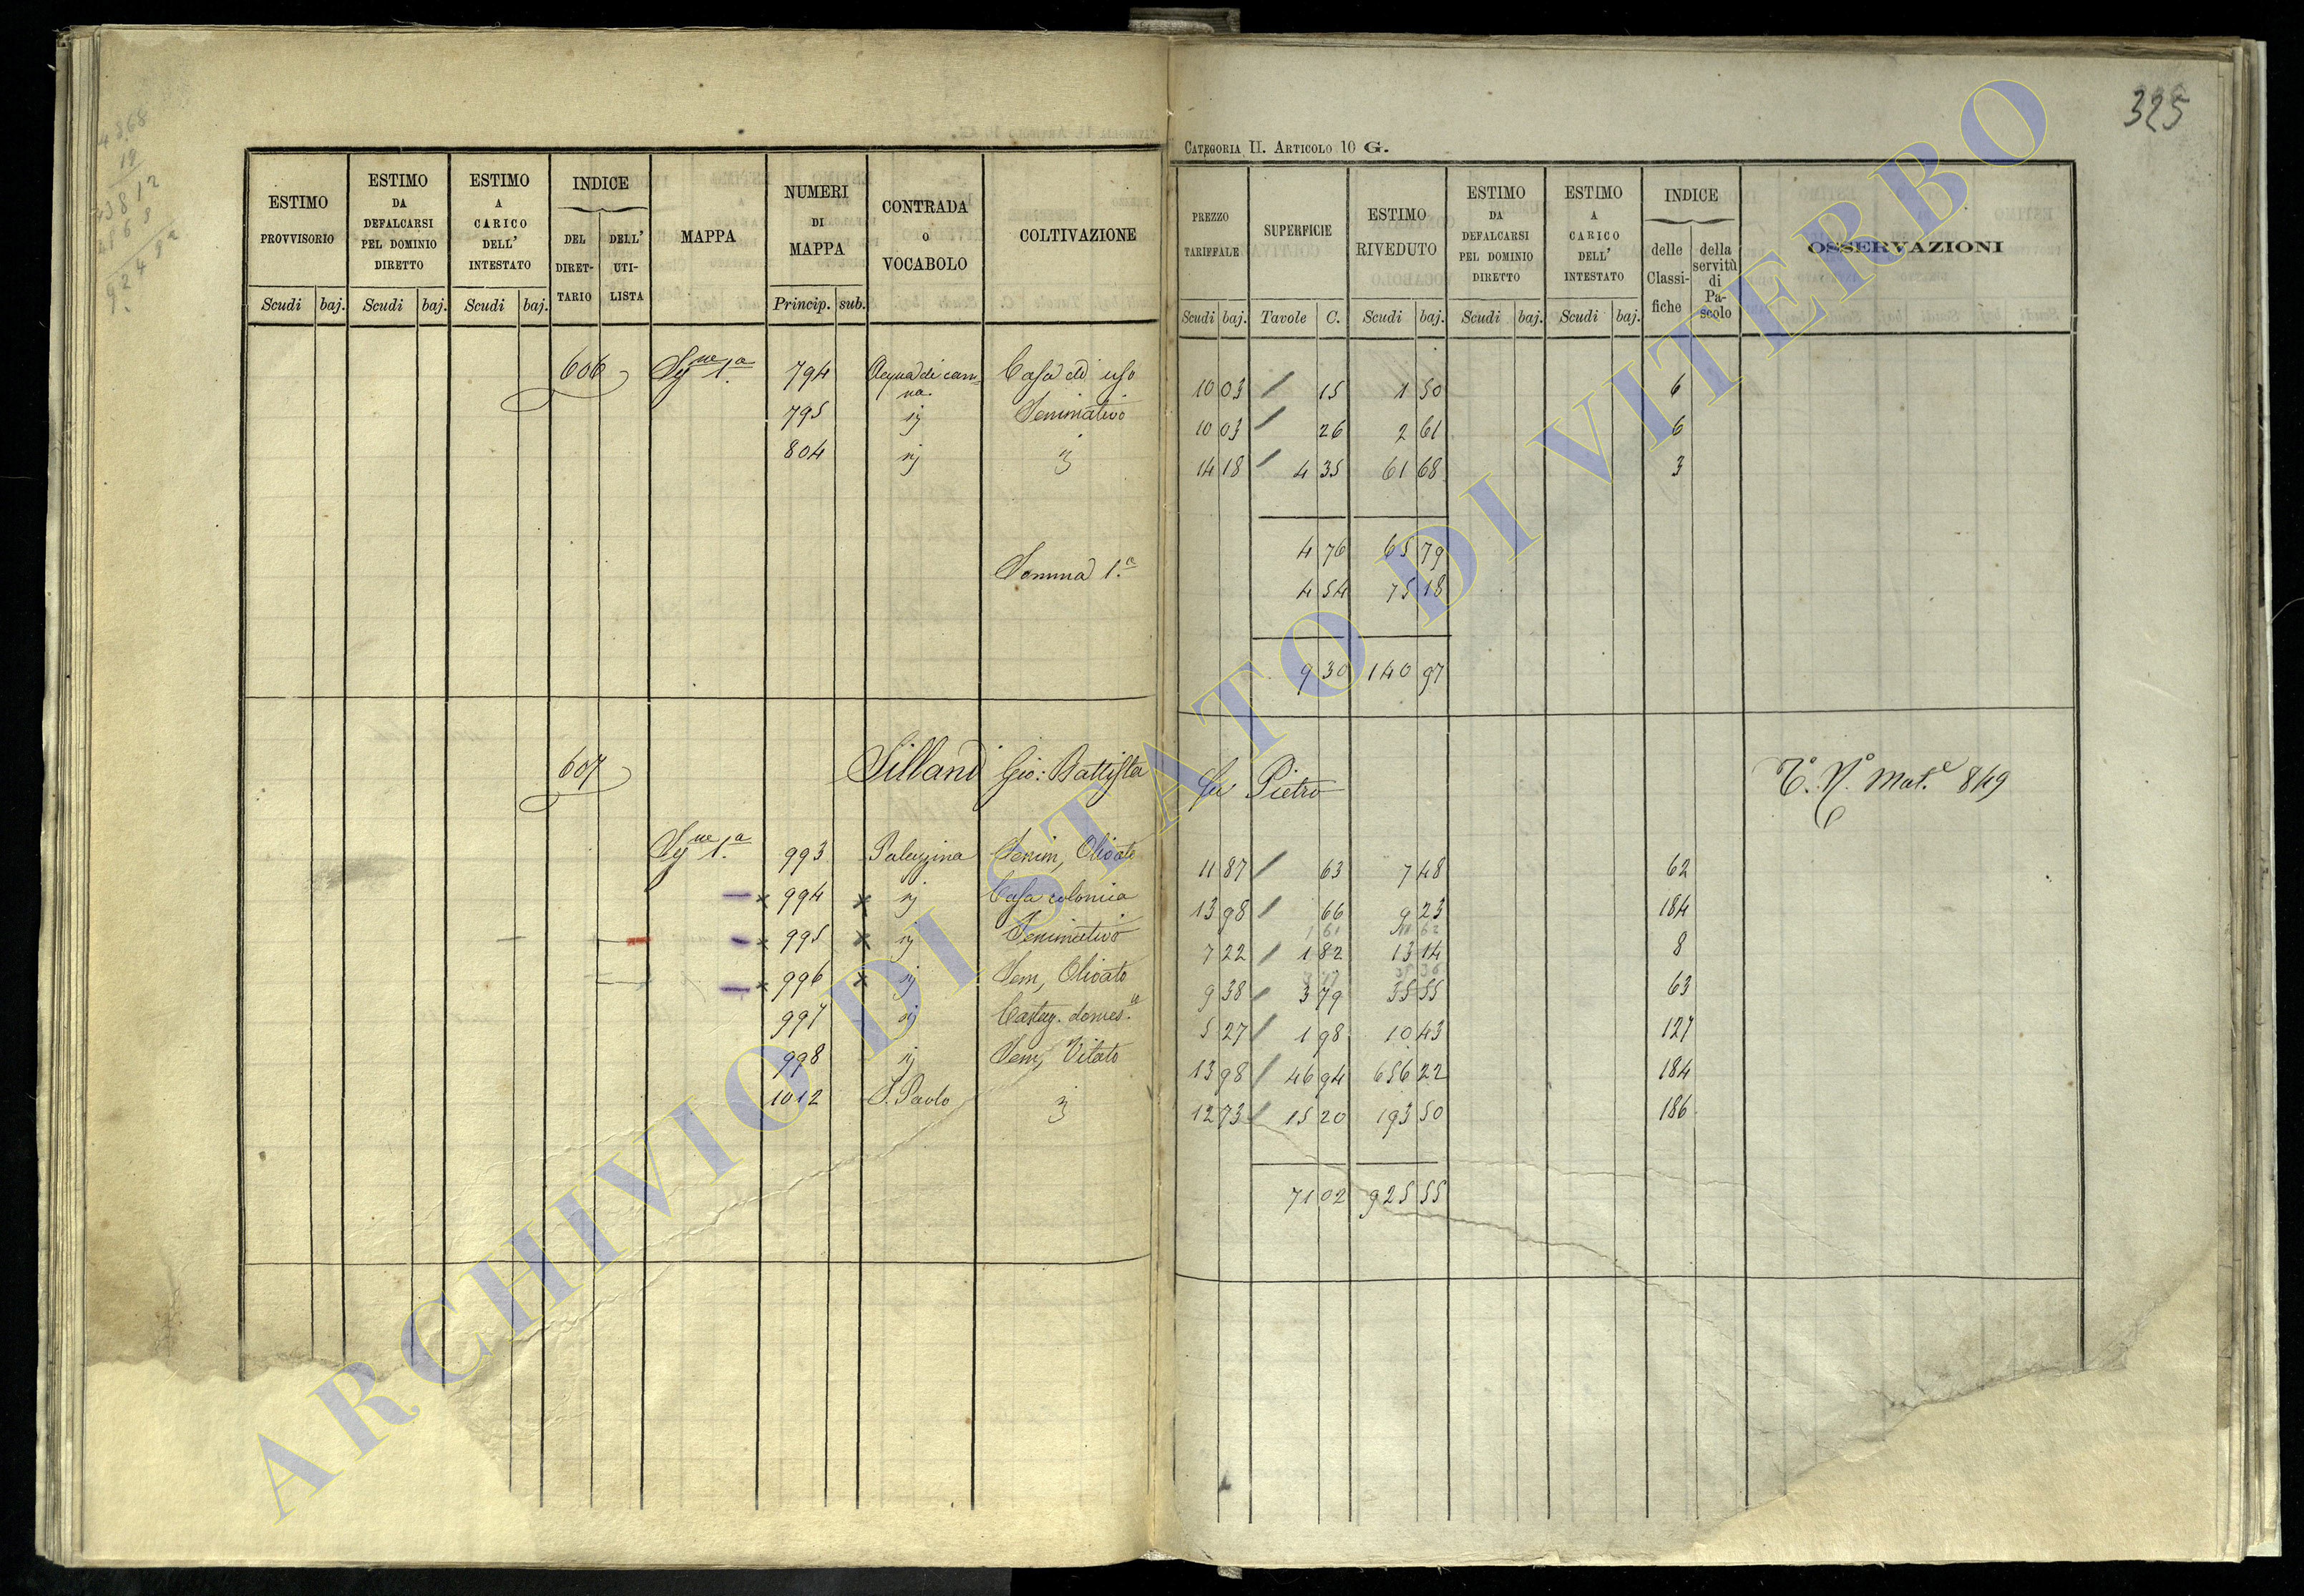 325
Categoria II. Articolo 10 G.
ESTIMO PROVVISORIO
ESTIMO DA DEFALCARSI PEL DOMINIO DIRETTO
ESTIMO A CARICO DELL' INTESTATO
INDICE
DEL DIRETTARIO
DELL' UTILISTA
MAPPA
NUMERI DI MAPPA
CONTRADA O VOCABOLO
COLTIVAZIONE
PREZZO TARIFFALE
SUPERFICIE
ESTIMO RIVEDUTO
ESTIMO DA DEFALCARSI PEL DOMINIO DIRETTO
ESTIMO A CARICO DELL' INTESTATO
INDICE
delle Classifiche
della servitù di Pascolo
OSSERVAZIONI
Scudi baj. Scudi baj. Scudi baj. Princip. sub. Scudi baj. Tavole C. Scudi baj. Scudi baj. Scudi baj.
606 1.a 794 Acqua di canna Casa di uso 10 03 15 1 50 6
795 Seminativo 10 03 26 2 61 6
804 14 18 4 35 61 68 3
4 76 65 79
Somma 1.a 4 54 75 18
9 30 140 97
607 Sillani Gio: Battista fu Pietro Mat.e 849
1.a 993 Palazzina Semin, Olivato 11 87 63 7 48 62
994 Casa colonica 13 98 66 9 23 184
995 Seminativo 7 22 1 82 13 14 8
996 Sem, Olivato 9 38 3 79 35 55 63
997 Castag. domes. 5 27 1 98 10 43 127
998 Sem, Vitato 13 98 46 94 656 22 184
1012 S. Paolo 12 73 15 20 193 50 186
71 02 925 55
ARCHIVIO DI STATO DI VITERBO